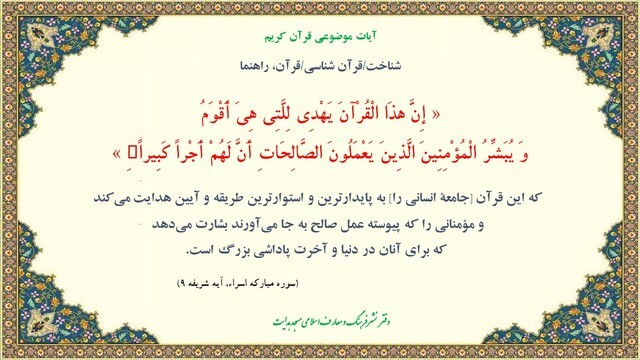 آیات موضوعی قرآن کریم
شناخت/قرآن شناسی/قرآن، راهنما
« إِنَّ هذَا الْقُرْآنَ يَهْدِي لِلَّتِي هِيَ أَقْوَمُ
وَ يُبَشِّرُ الْمُؤْمِنِينَ الَّذِينَ يَعْمَلُونَ الصَّالِحَاتِ أَنَّ لَهُمْ أَجْراً كَبِيراً »
که این قرآن [جامعۀ انسانی را] به پایدارترین و استوارترین طریقه و آیین هدایت می‌کند
و مؤمنانی را که پیوسته عمل صالح به جا می‌آورند بشارت می‌دهد
که برای آنان در دنیا و آخرت پاداشی بزرگ است.
(سوره مبارکه اسراء، آیه شریفه ۹)
دفتر نشر فرهنگ و معارف اسلامی مسجد هدایت